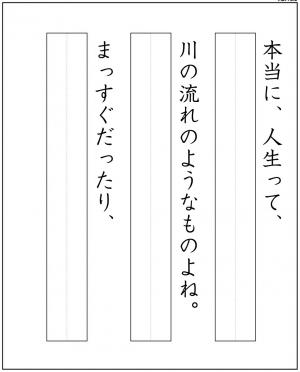 本当に、人生って、
川の流れのようなものよね。
まっすぐだったり、